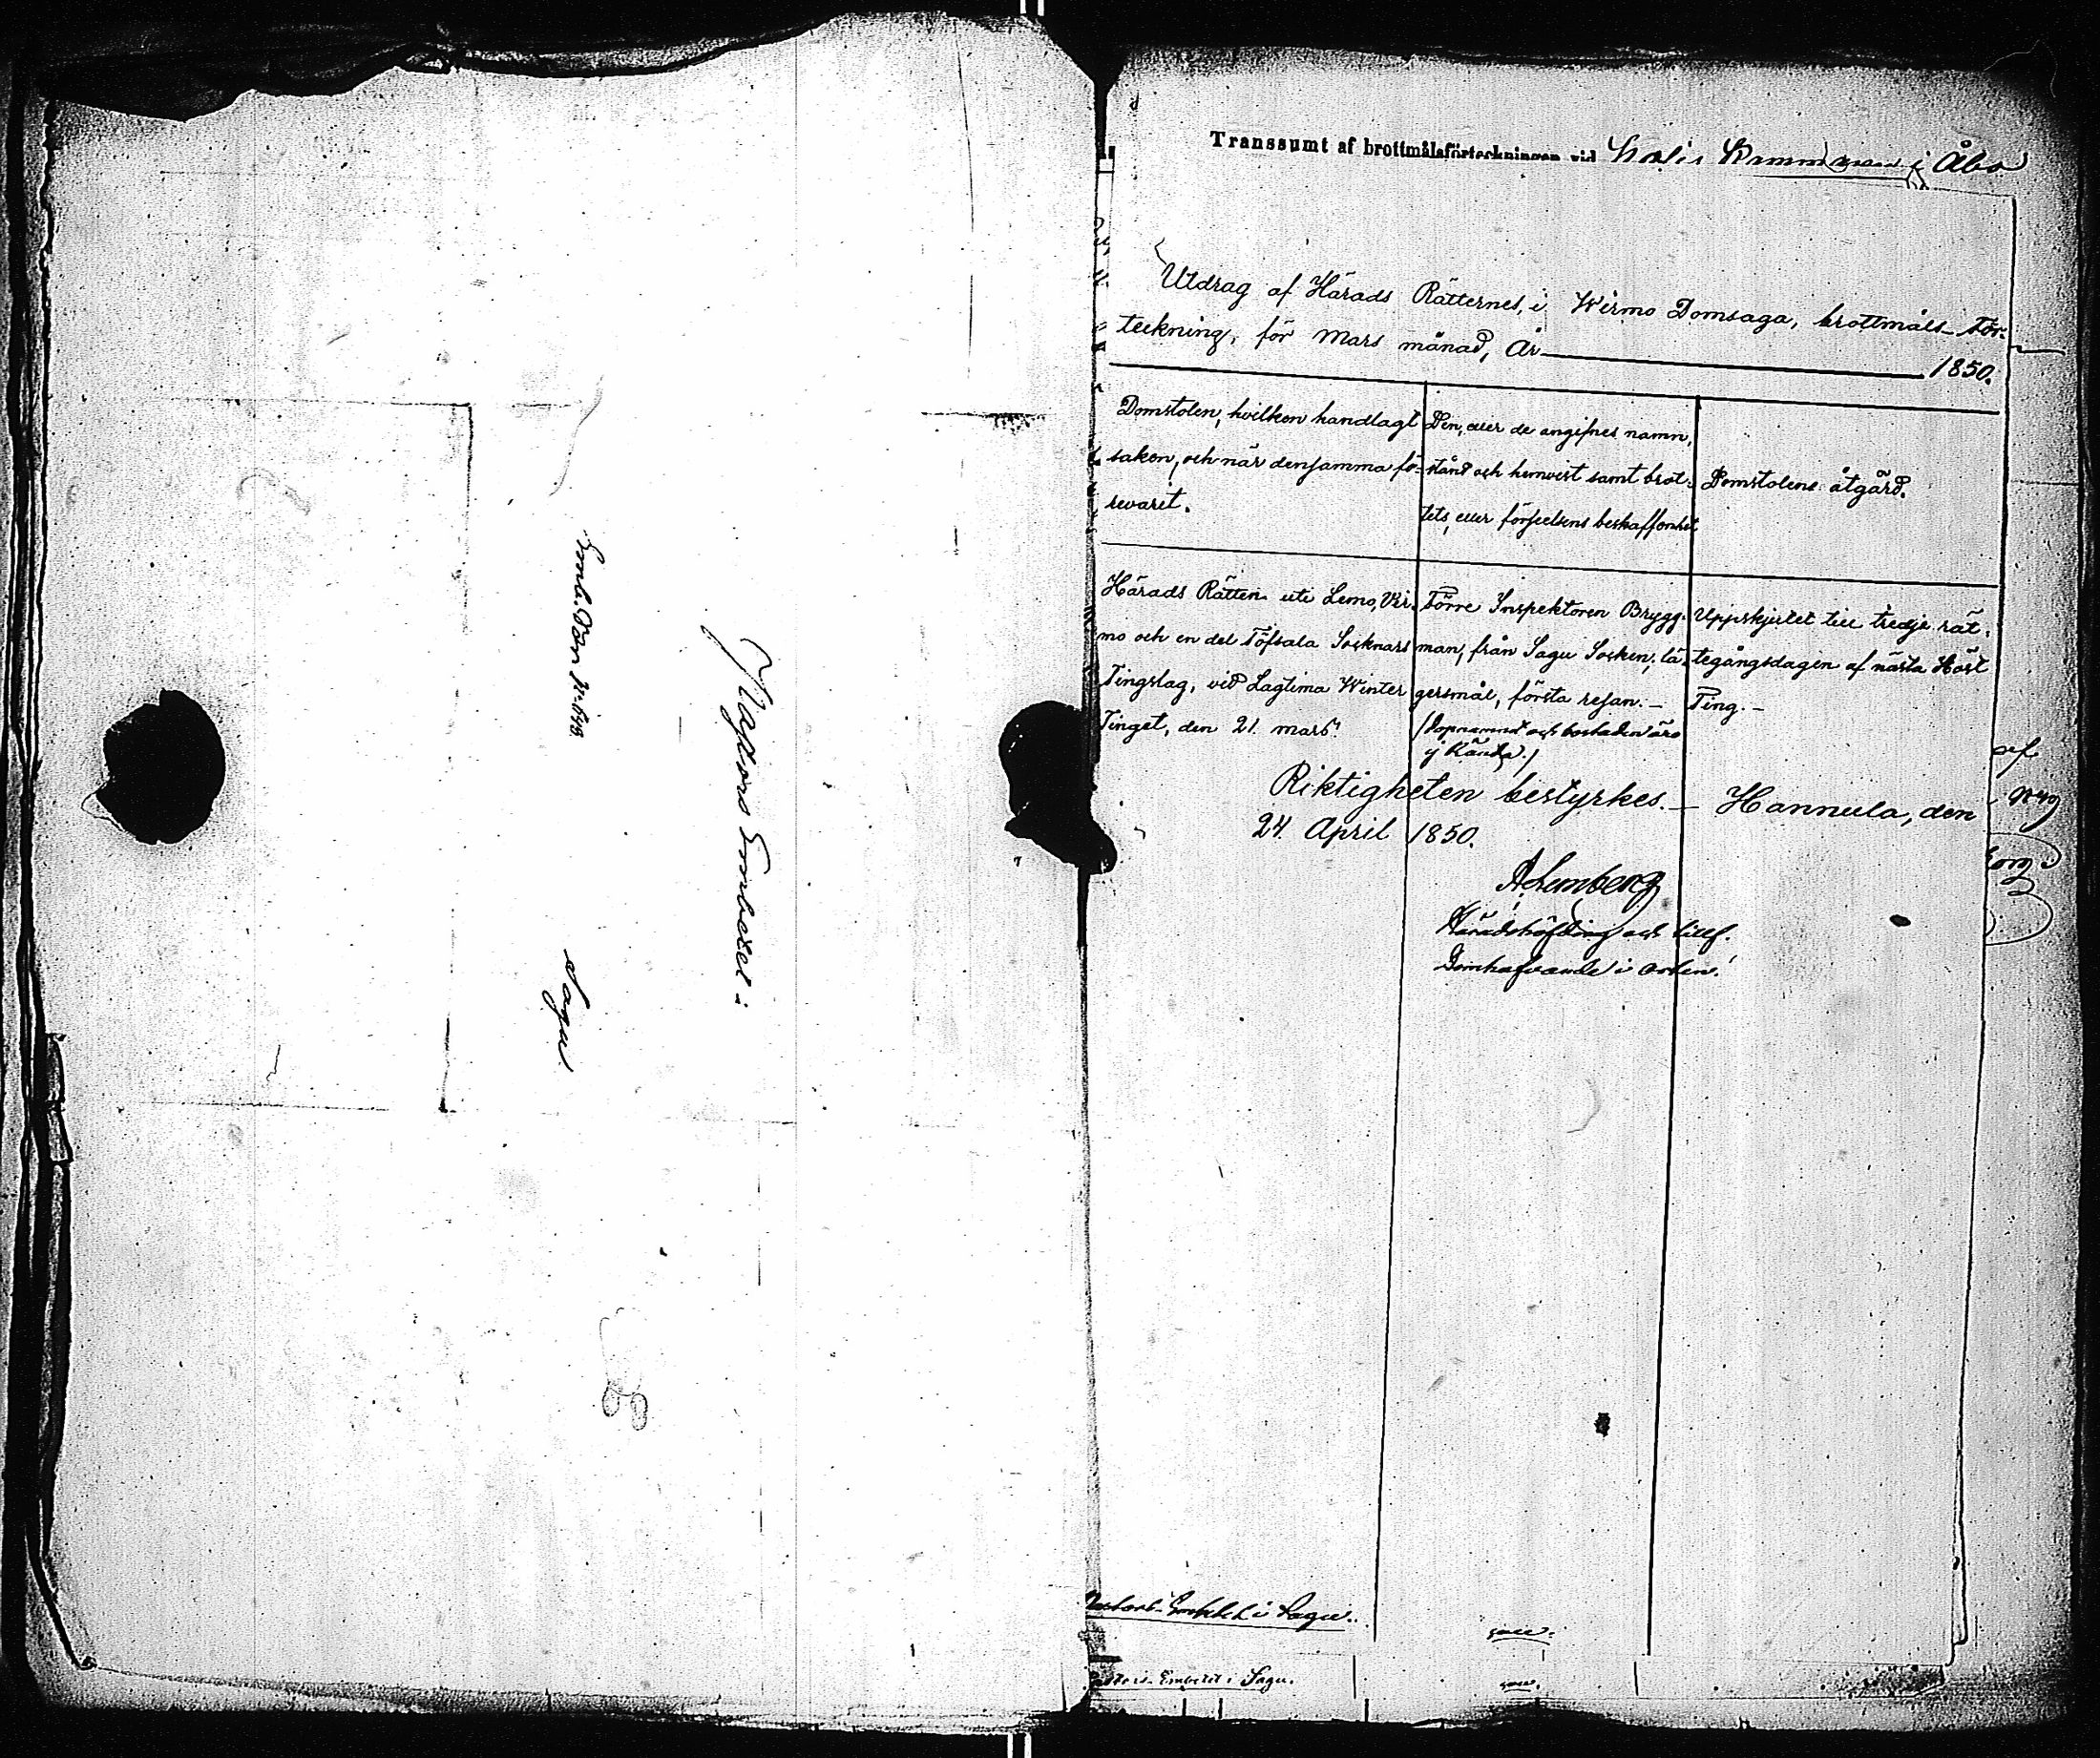 Pastors Embetet i
Sagu
Transsumt af brottmålsförteckningen vid Polis Kammaren i Åbo
Utdrag af Härads Rätternes, i Wirmo Domsaga, brottmåls-för-
teckning, för Mars månad, År 1850.
Domstolen, hvilken handlagt
saken, och när densamma fö-
revarit.
Den, eller de angifnes namn,
stånd och hemvist samt brot-
tets, eller förseelsens beskaffenhet
Domstolens åtgärd.
Härads Rätten uti Lemo, Vir-
mo och en del Töfsala Socknars
Tingslag, vid Lagtima Winter
Tinget, den 21. Mars.
Förre Inspektoren Brygg-
man, från Sagu Socken; lä-
gersmål, första resan. –
(Dopnamnet och bostaden äro
ej kända.)
Uppskjutet till tredje rät-
tegångsdagen af nästa Höst
Ting. –
Riktigheten bestyrkes. – Hannula, den
24. April 1850.
A Lemberg
Häradshöfding och tillf.
Domhafvande i orten.
Pastors-Embetet i Sagu.
Pastors-Embetet i Sagu.